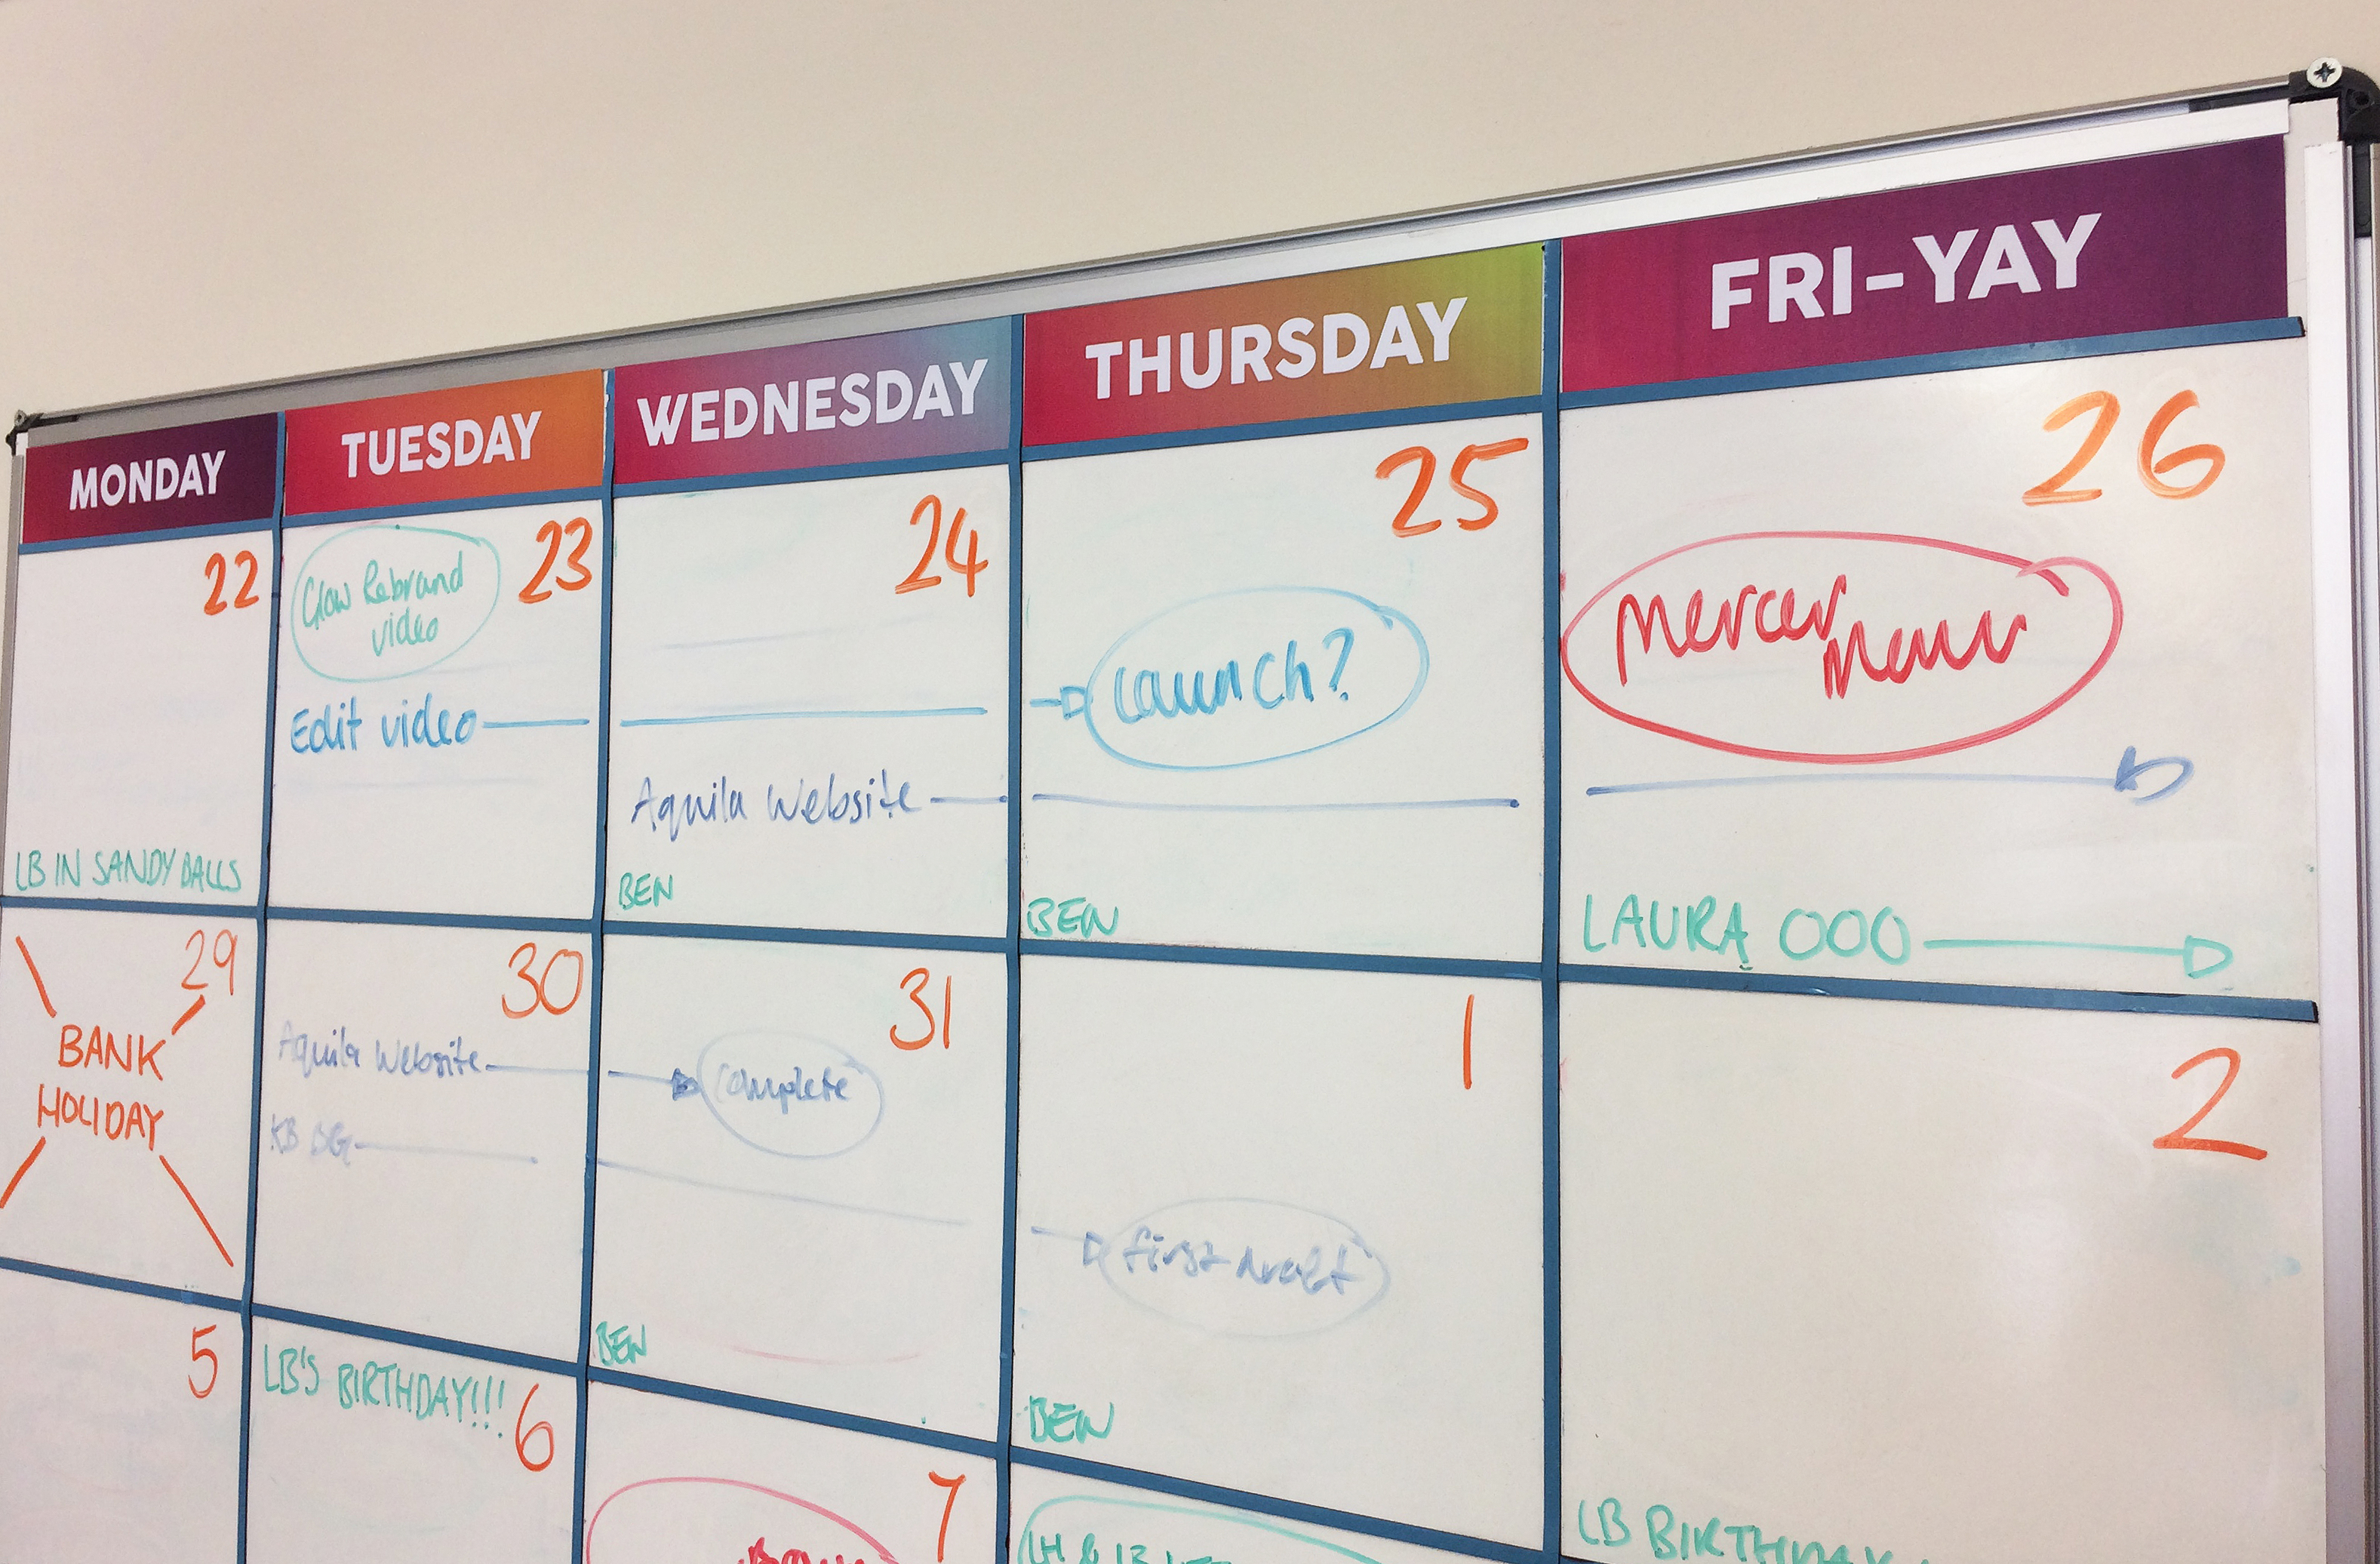 MONDAY
TUESDAY
WEDNESDAY
THURSDAY
FRI-YAY
22
LB IN SANDY BALLS
23
Glow Rebrand
video
Edit video
24
Aquila Website
BEN
25
Launch?
BEN
26
Mercer
LAURA OOO
29
BANK
HOLIDAY
30
Aquila Website
KB
31
complete
BEN
1
first draft
BEN
2
LB BIRTHDAY
5
LB'S BIRTHDAY!!!
6
7
LH & LB